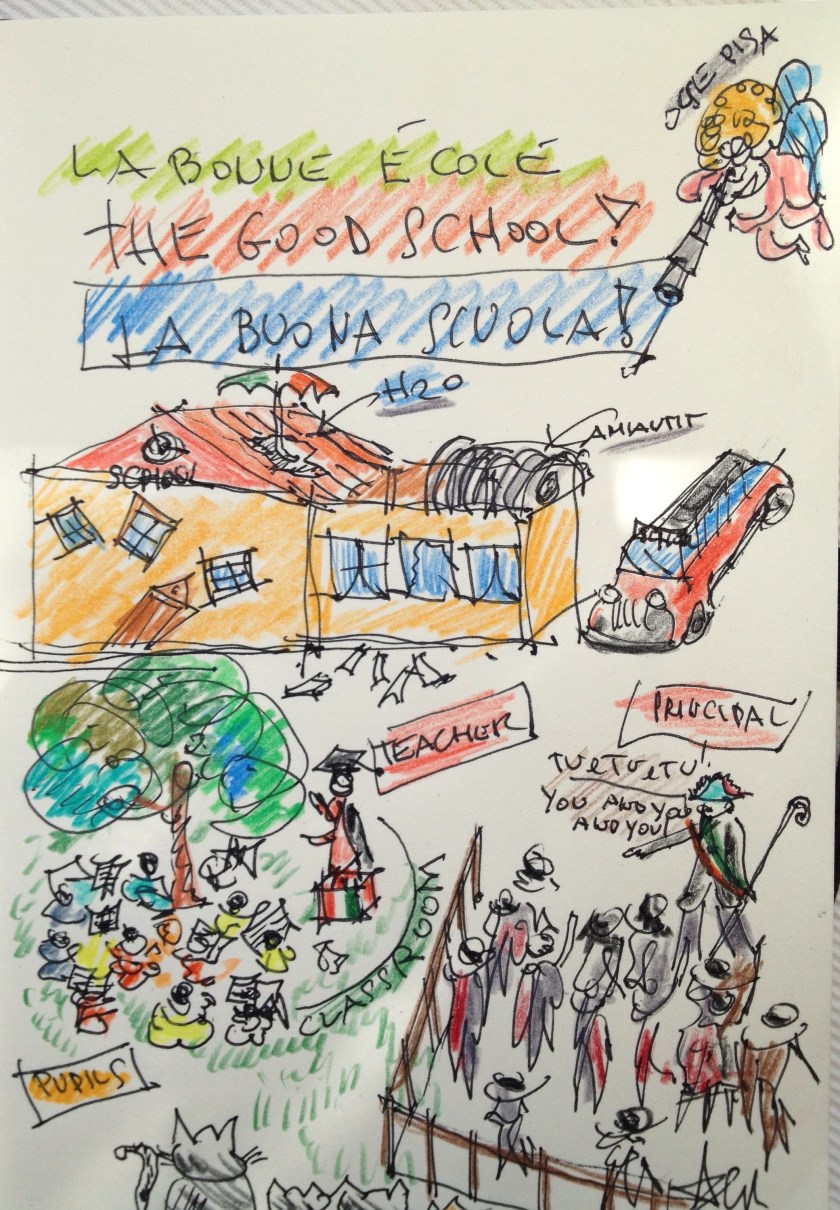 OCSE PISA
LA BONNE ÉCOLÉ
THE GOOD SCHOOL!
LA BUONA SCUOLA!
H2O
SCHOOL
TEACHER
PRINCIPAL
TU e TU e TU
YOU AND YOU
AND YOU
CLASSROOM
PUPILS